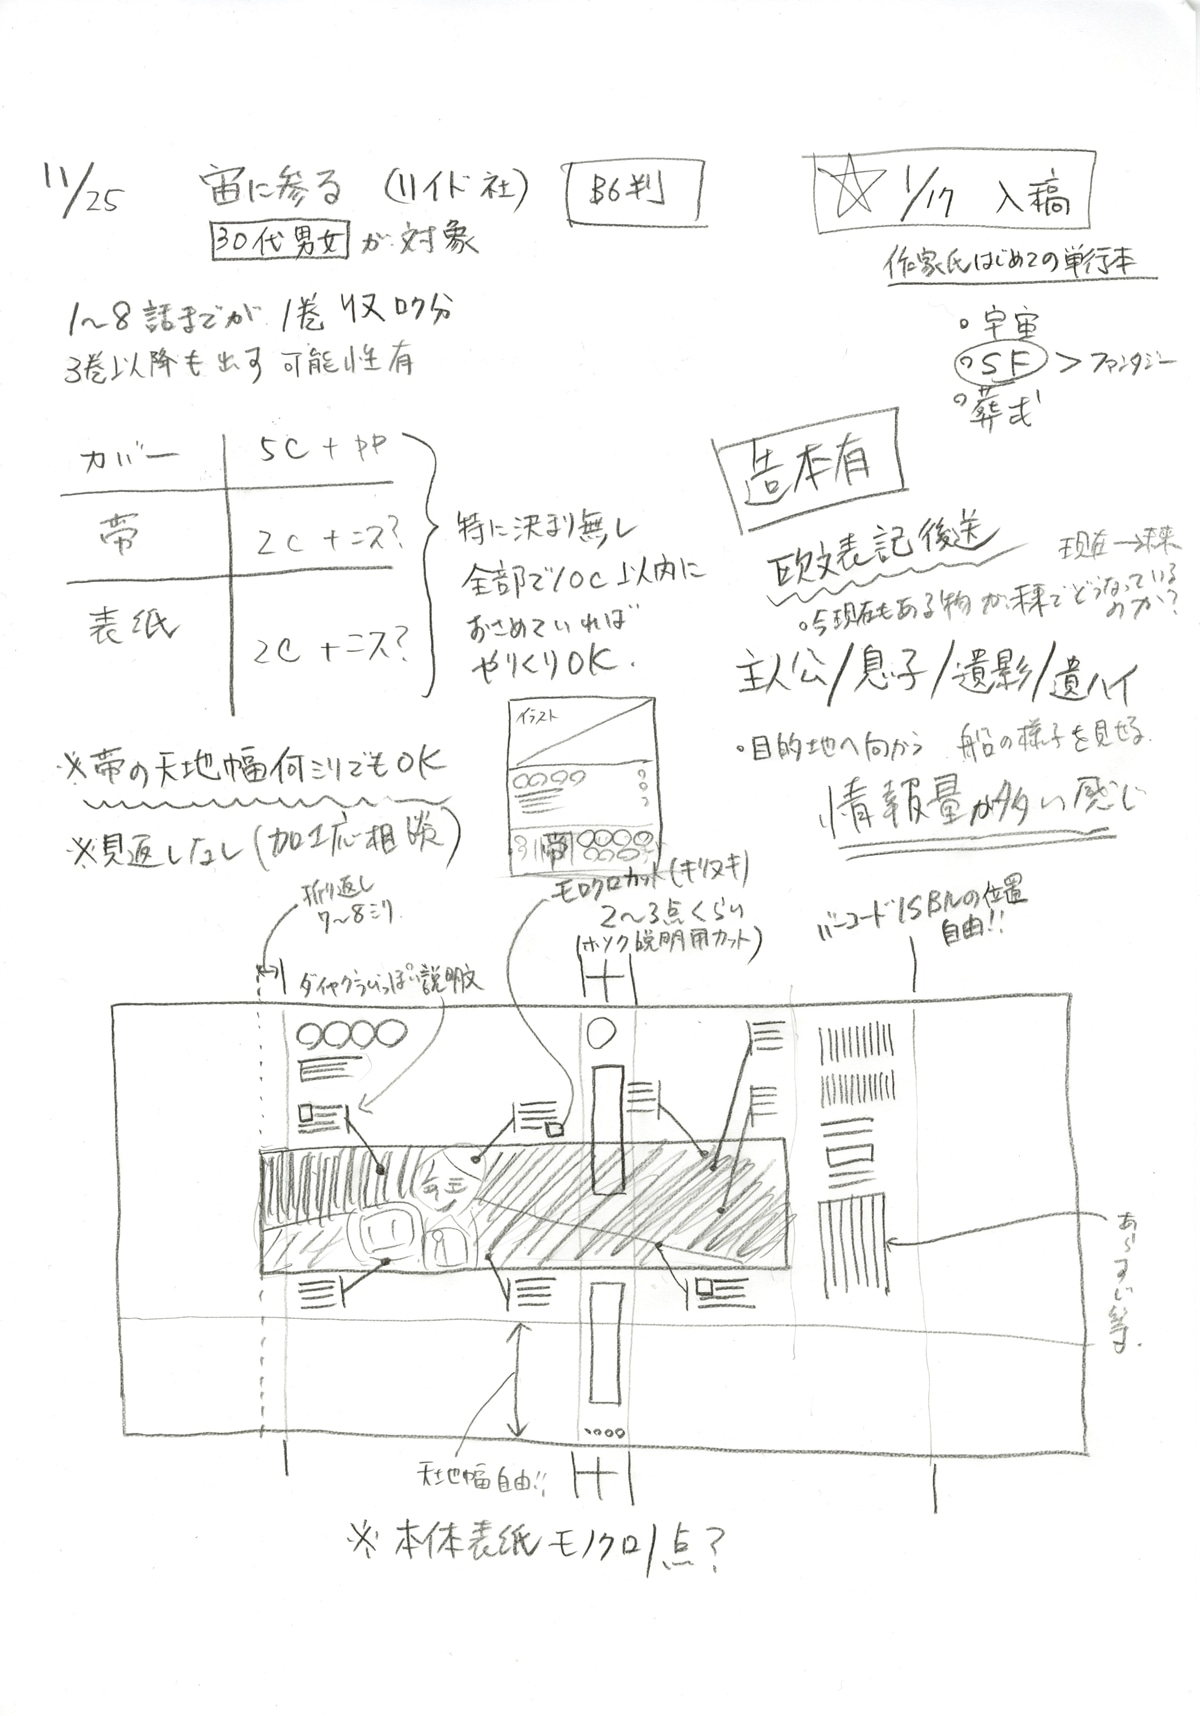 11/25
宙に参る (リイド社)
B6判
☆ 1/17 入稿
30代男女が対象
作家氏はじめての単行本
1〜8話までが1巻収ロク分
3巻以降も出す可能性有
。宇宙
。SF > ファンタジー
。葬式
カバー 5C + PP
帯 2C + ニス?
表紙 2C + ニス?
特に決まり無し
全部で10C以内に
おさめていれば
やりくりOK.
造本有
欧文表記後送
現在→未来
。今現在もある物が未来でどうなっている
のか?
主人公/息子/遺影/遺ハイ
。目的地へ向かう 船の様子を見せる.
情報量が多い感じ
※帯の天地幅何ミリでもOK
※見返しなし(加工応相談)
イラスト
帯
折り返し
7〜8ミリ
モロクロカット(キリヌキ)
2〜3点くらい
(ホソク説明用カット)
バーコードISBNの位置
自由!!
ダイヤグラムっぽい説明文
あらすじ等.
天地幅自由!!
※本体表紙モノクロ1点?